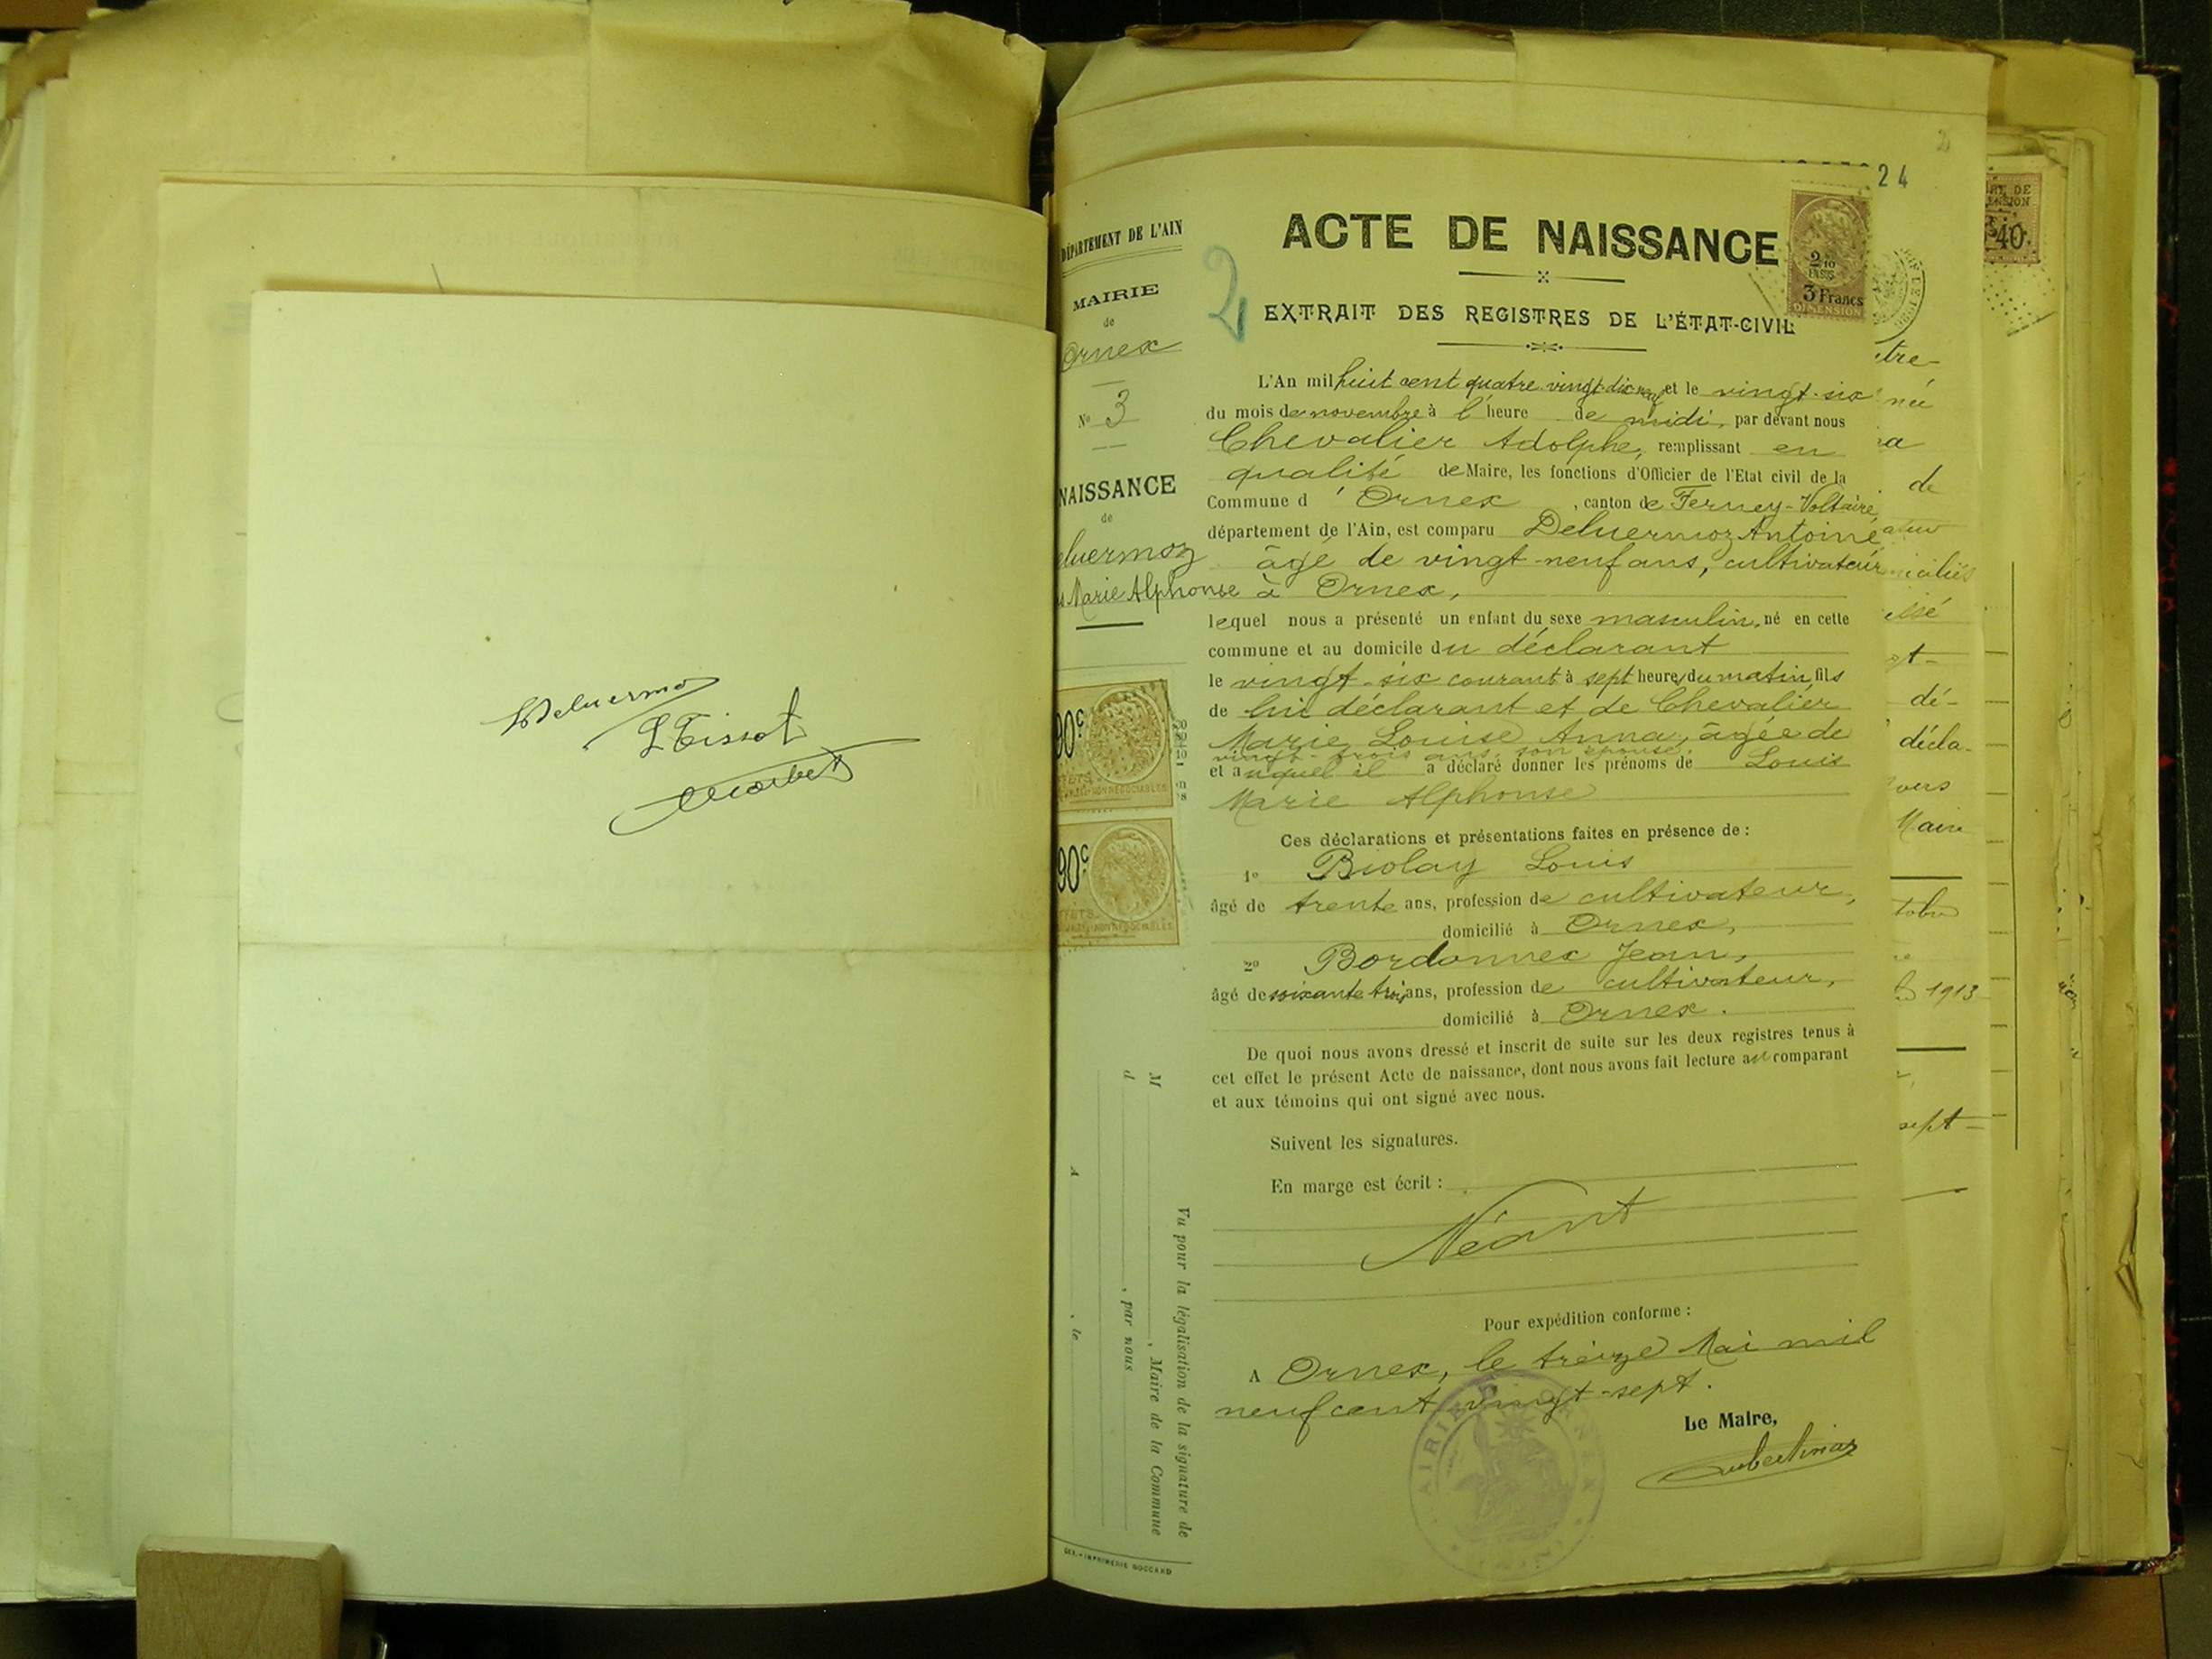 Deluermoz
L Tissot
24
DÉPARTEMENT DE L'AIN
MAIRIE
de
Ornex
N° 3
NAISSANCE
de
eluermoz
s Marie Alphonse
90c
90c
2
ACTE DE NAISSANCE
EXTRAIT DES REGISTRES DE L'ÉTAT-CIVIL
3 Francs
DIMENSION
L'An mil huit cent quatre-vingt-dix-neuf et le vingt-six
du mois de novembre à l' heure de midi, par devant nous
Chevalier Adolphe, remplissant en
qualité de Maire, les fonctions d'Officier de l'Etat civil de la
Commune d'Ornex, canton de Ferney-Voltaire
département de l'Ain, est comparu Deluermoz Antoine
âgé de vingt-neuf ans, cultivateur
à Ornex,
lequel nous a présenté un enfant du sexe masculin, né en cette
commune et au domicile du déclarant
le vingt-six courant à sept heures du matin, fils
de lui déclarant et de Chevalier
Marie Louise Anna, âgée de
vingt-trois ans, son épouse.
et auquel il a déclaré donner les prénoms de Louis
Marie Alphonse
Ces déclarations et présentations faites en présence de :
1° Biolay Louis
âgé de trente ans, profession de cultivateur,
domicilié à Ornex,
2° Bordonnex Jean,
âgé de soixante trois ans, profession de cultivateur,
domicilié à Ornex.
De quoi nous avons dressé et inscrit de suite sur les deux registres tenus à
cet effet le présent Acte de naissance, dont nous avons fait lecture au comparant
et aux témoins qui ont signé avec nous.
Suivent les signatures.
En marge est écrit :
Néant
Pour expédition conforme :
A Ornex, le treize Mai mil
neuf cent vingt-sept.
Le Maire,
Vu pour la légalisation de la signature de
M , Maire de la Commune
d , par nous
A , le
GEX. - IMPRIMERIE
40
née
de
dé-
décla-
vers
Maire
1913
sept-